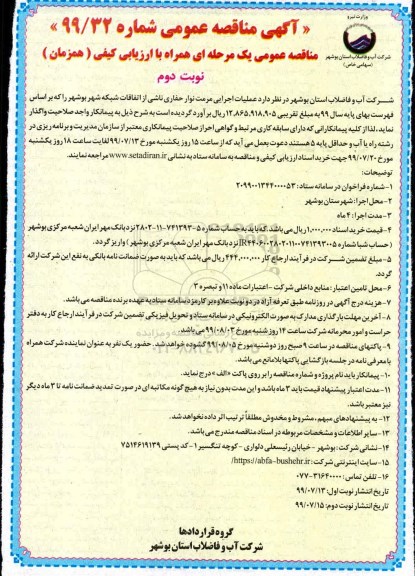 « آگهی مناقصه عمومی شماره ۹۹/۳۲ »
مناقصه عمومی یک مرحله ای همراه با ارزیابی کیفی ( همزمان )
نوبت دوم
وزارت نیرو
شرکت آب و فاضلاب استان بوشهر
(سهامی خاص)
شرکت آب و فاضلاب استان بوشهر در نظر دارد عملیات اجرایی مرمت نوار حفاری ناشی از اتفاقات شبکه شهر بوشهر را که بر اساس
فهرست بهای پایه سال ۹۹ به مبلغ تقریبی ۱۲،۸۶۵،۹۱۸،۹۰۵ ریال برآورد گردیده است به شرح ذیل به پیمانکار واجد صلاحیت واگذار
نماید. لذا از کلیه پیمانکارانی که دارای سابقه کاری مرتبط و گواهی احراز صلاحیت پیمانکاری معتبر از سازمان مدیریت و برنامه ریزی در
رشته راه یا آب و حداقل پایه ۵ هستند دعوت بعمل می آید که از ساعت ۸ روز یکشنبه مورخ ۹۹/۰۷/۱۳ لغایت ساعت ۱۸ روز یکشنبه
مورخ ۹۹/۰۷/۲۰ جهت خرید اسناد ارزیابی کیفی و مناقصه به سامانه ستاد به نشانی www.setadiran.ir مراجعه نمایند.
توضیحات:
۱- شماره فراخوان در سامانه ستاد : ۲۰۹۹۰۰۱۳۴۴۰۰۰۰۵۳
۲- محل اجرا: شهرستان بوشهر
۳- مدت اجرا : ۴ ماه
۴- قیمت خرید اسناد ۱،۰۰۰،۰۰۰ ریال می باشد. که باید به حساب شماره ۷۴۱۳۹۳۰۵-۱۱-۲۸۰۲ نزد بانک مهر ایران شعبه مرکزی بوشهر
( حساب شبا شماره نزد بانک مهر ایران شعبه مرکزی بوشهر ) واریز گردد.
۵- مبلغ تضمین شرکت در فرآیند ارجاع کار ۴۴۴،۰۰۰،۰۰۰ ریال می باشد که باید به صورت ضمانت نامه بانکی به نفع این شرکت ارائه
گردد.
۶- محل تامین اعتبار : منابع داخلی شرکت - اعتبارات ماده ۱۱ و تبصره ۳
۷- هزینه درج آگهی در روزنامه طبق تعرفه آزاد در دو نوبت علاوه بر کارمزد سامانه ستاد به عهده برنده مناقصه می باشد.
۸- آخرین مهلت بارگذاری مدارک به صورت الکترونیکی در سامانه ستاد و تحویل فیزیکی تضمین شرکت در فرآیند ارجاع کار به دفتر
حراست و امور محرمانه شرکت ساعت ۱۴ روز شنبه مورخ ۹۹/۰۸/۰۳ می باشد.
۹- پاکتهای مناقصه در ساعت ۹ صبح روز دوشنبه مورخ ۹۹/۰۸/۰۵ گشوده خواهد شد. حضور یک نفر به عنوان نماینده شرکت همراه
با معرفی نامه در جلسه بازگشایی پاکتها بلامانع می باشد.
۱۰- پیمانکار باید نام پروژه و شماره مناقصه را بر روی پاکت «الف» درج نماید.
۱۱- مدت اعتبار پیشنهاد قیمت باید ۳ ماه باشد و این مدت بدون نیاز به هیچ گونه مکاتبه ای در صورت تمدید ضمانت نامه تا ۳ ماه دیگر
نیز معتبر باشد.
۱۲- به پیشنهادهای مبهم، مشروط و مخدوش مطلقاً ترتیب اثر داده نخواهد شد.
۱۳- سایر اطلاعات و مشخصات مربوطه در اسناد مناقصه مندرج می باشد.
۱۴- نشانی شرکت : بوشهر - خیابان رئیسعلی دلواری - کوچه تنگسیر ۱- کد پستی ۷۵۱۴۶۱۹۱۳۹
۱۵- سایت اینترنتی شرکت : https://abfa-bushehr.ir/
۱۶- تلفن تماس : ۳۱۶۴۰۰۰۰-۰۷۷
تاریخ انتشار نوبت اول : ۹۹/۰۷/۱۳
تاریخ انتشار نوبت دوم : ۹۹/۰۷/۱۵
گروه قراردادها
شرکت آب و فاضلاب استان بوشهر